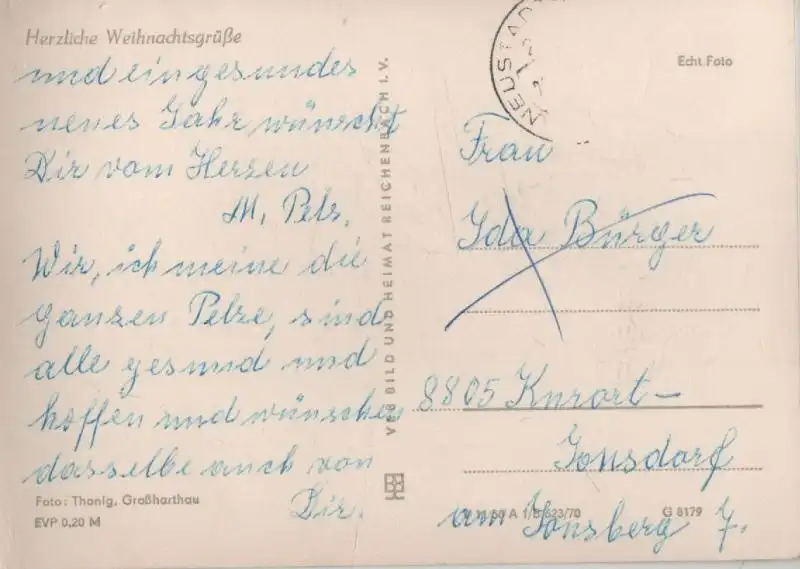 Herzliche Weihnachtsgrüße
und ein gesundes
neues Jahr wünscht
Dir vom Herzen
M. Pelz.
Wir, ich meine die
ganzen Pelze, sind
alle gesund und
hoffen und wünschen
dasselbe auch von
Dir.
Foto: Thonig, Großharthau
EVP 0,20 M
VEB BILD UND HEIMAT REICHENBACH I. V.
NEUSTAD
Echt Foto
Frau
Ida Bürger
8805 Kurort-
Jonsdorf
am Jonsberg 7.
A 1/B 623/70
G 8179